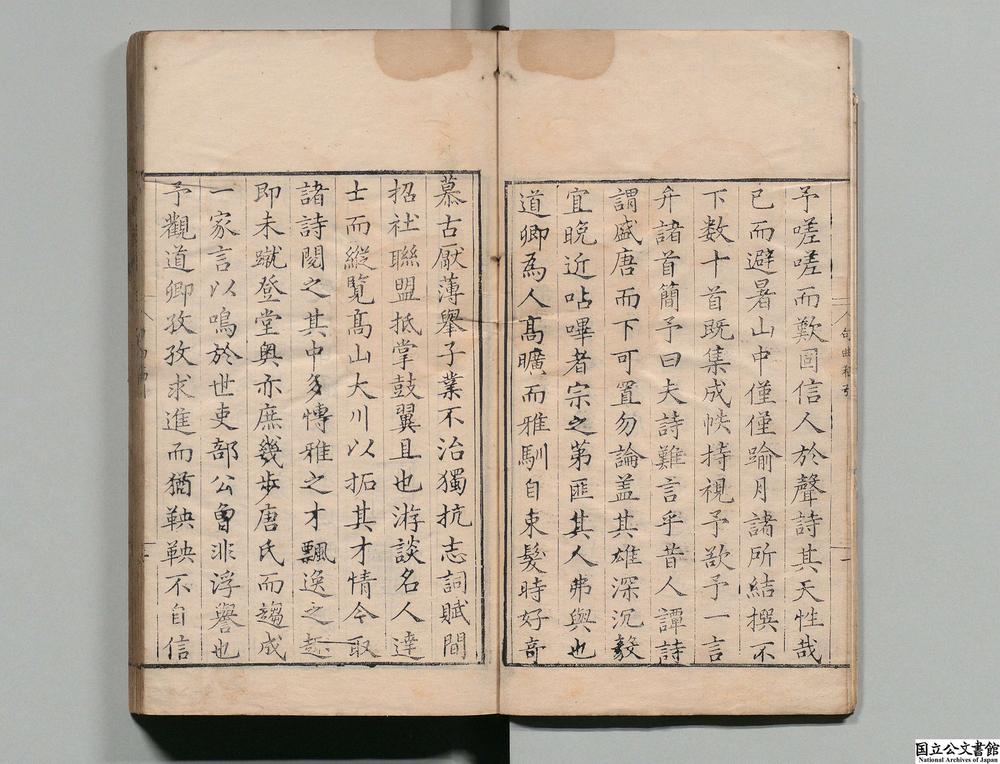 予嗟嗟而歎固信人於聲詩其天性哉
已而避暑山中僅僅踰月諸所結撰不
下数十首既集成帙持視予欲予一言
弁諸首簡予曰夫詩難言乎昔人譚詩
謂盛唐而下可置勿論盖其雄深沉毅
宜晩近呫嗶者宗之第匪其人弗與也
道卿爲人髙曠而雅馴自束髮時好奇
慕古厭薄舉子業不治獨抗志詞賦間
招社聯盟抵掌鼓翼且也游談名人達
士而縱覽髙山大川以拓其才情今取
諸詩閱之其中多慱雅之才飄逸之趣
即未蹴登堂奥亦庶幾步唐氏而趨成
一家言以鳴於世吏部公曾非浮譽也
予觀道卿孜孜求進而猶鞅鞅不自信
句曲稿引
一
国立公文書館
National Archives of Japan